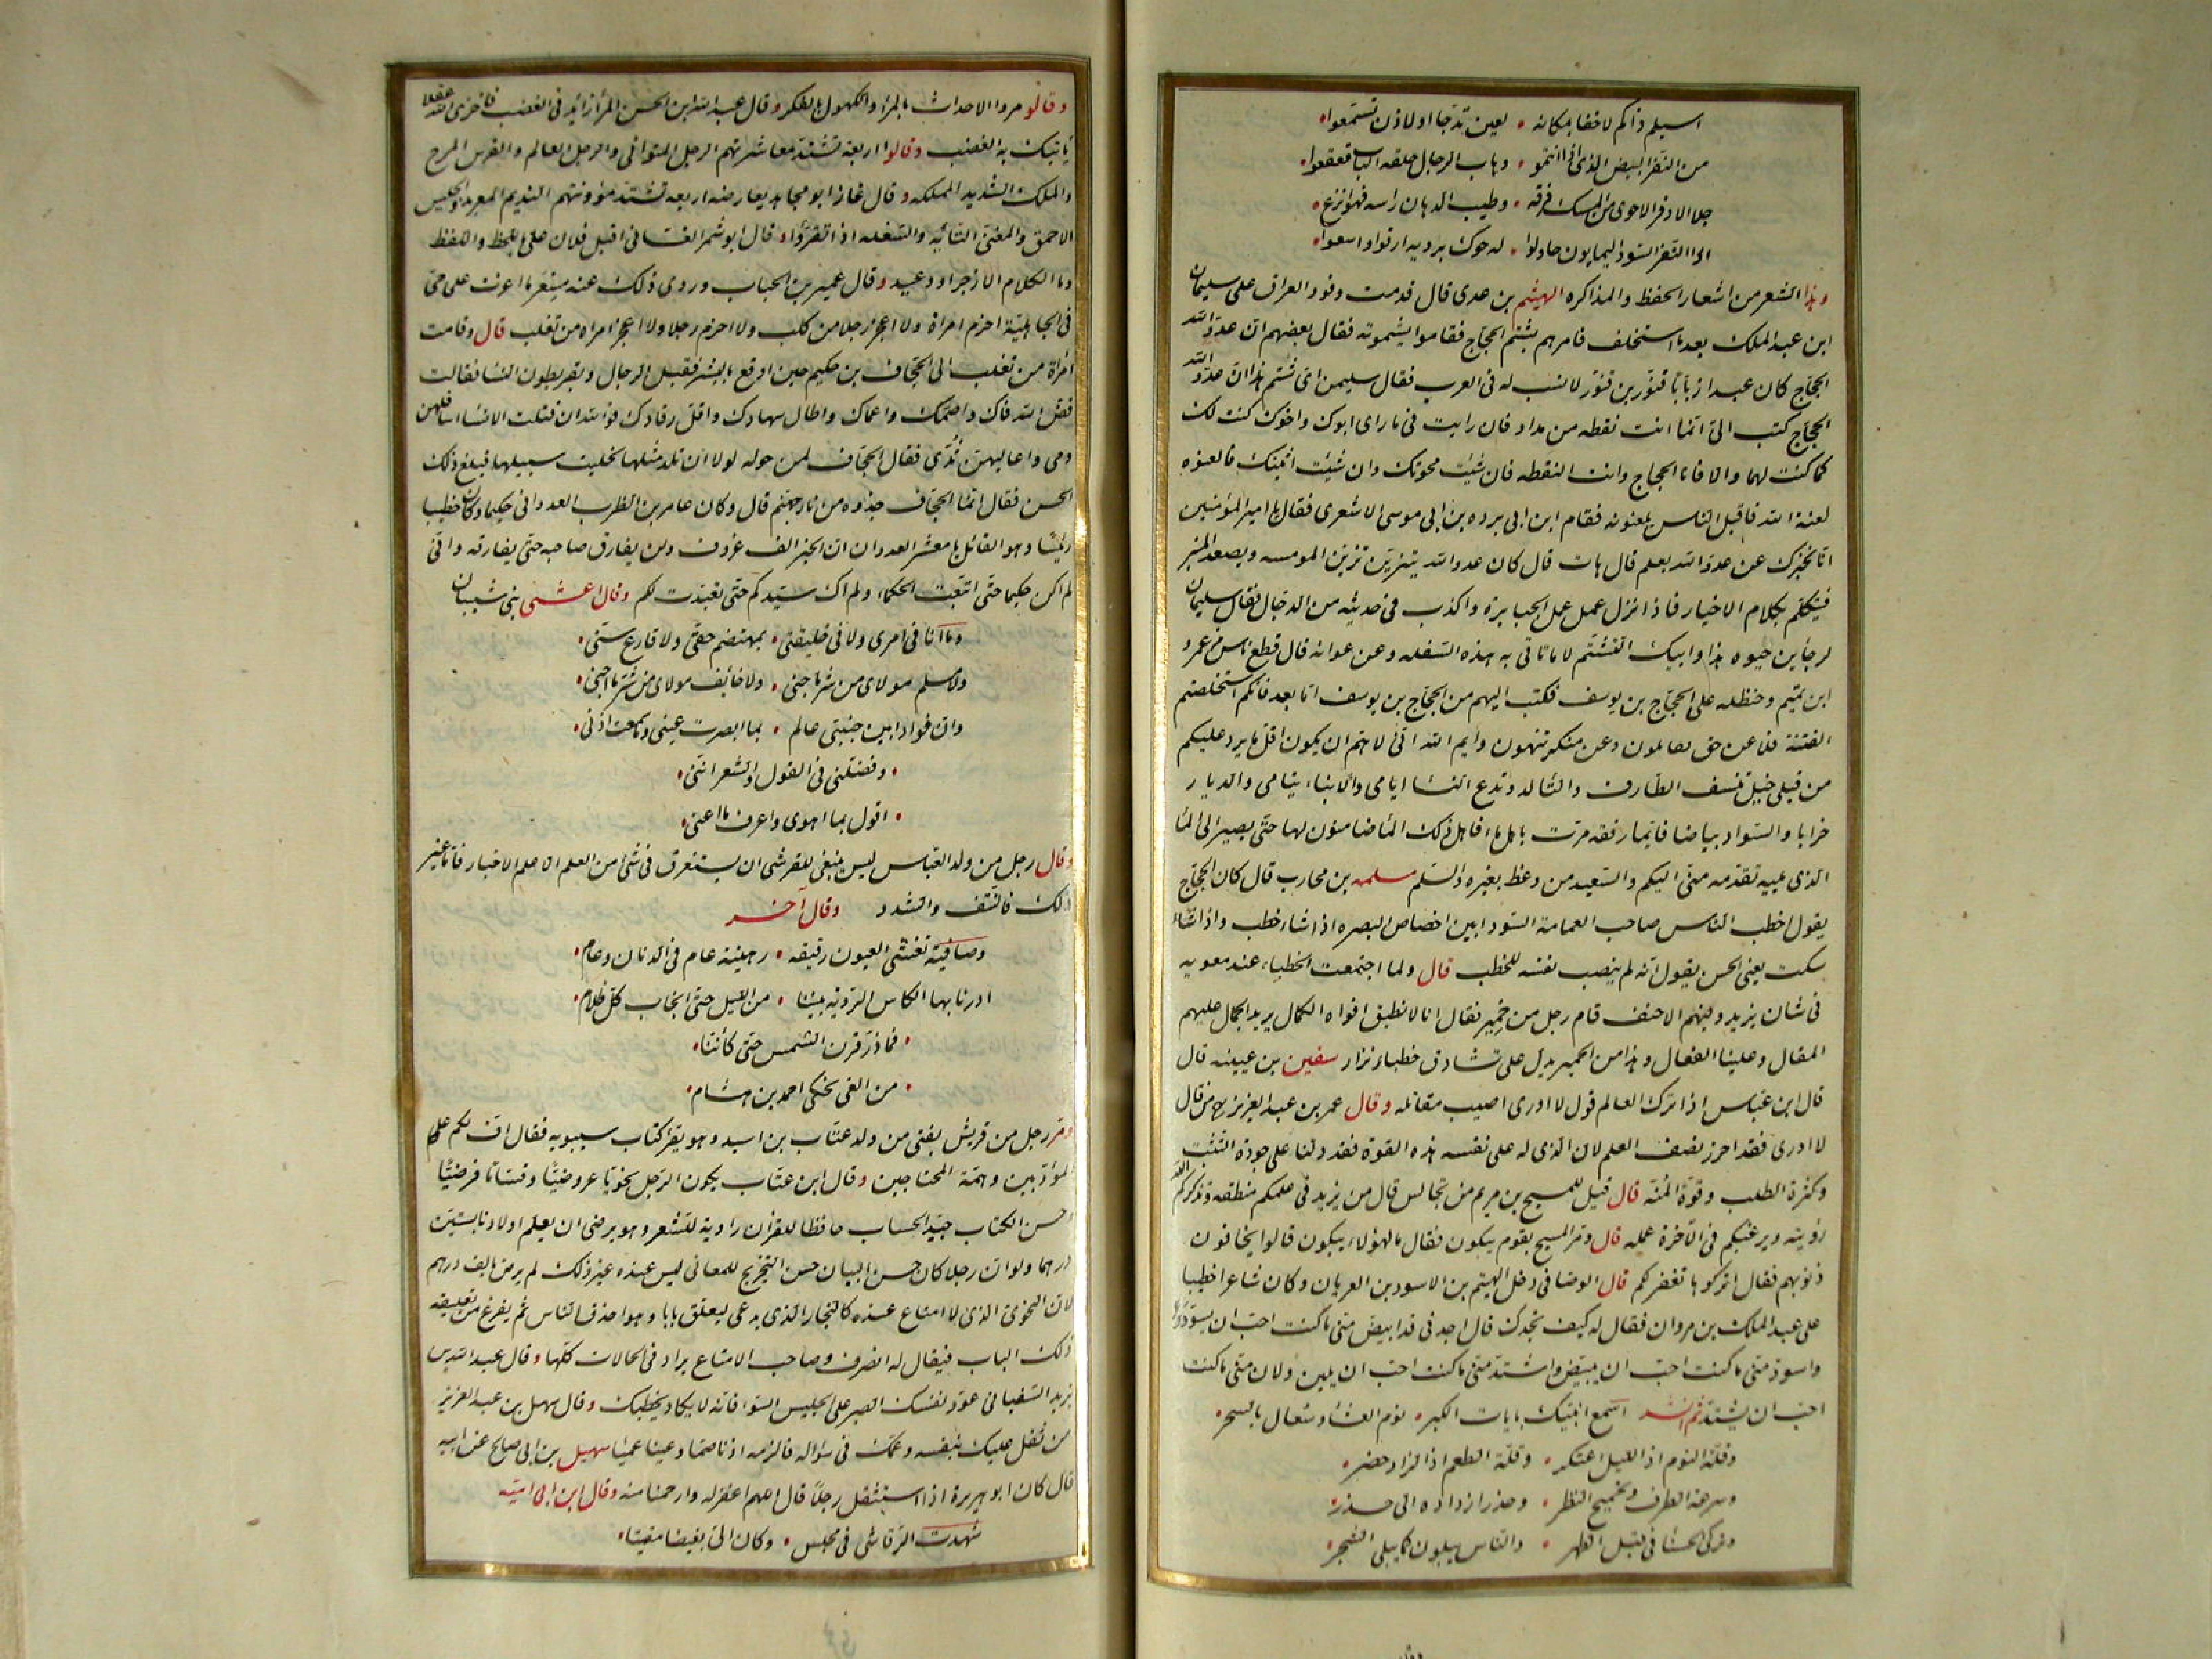 اسيلم ذاكم لا خفا بمكانه • لعين تدجا او لاذن تسمعوا
من النفر البيض الذى اذا انتمو • وهاب الرجال حلقه الباب قعقعوا
جلا الاذفر الاحوى من المسك فرقه • وطيب الدهان راسه فهو انزع
اذا النفر السود اليمانون حاولوا • له حوك برديه ارقوا واوسعوا
وهذا الشعر من اشعار الحفظ والمذاكره الهيثم بن عدى قال قدمت وفود العراق على سليمان
ابن عبد الملك بعد ما استخلف فامرهم بشتم الحجاج فقاموا يشتمونه فقال بعضهم ان عدو الله
الحجاج كان عبدا زبابا قنور بن قنور لا نسب له فى العرب فقال سليمن اى شتم هذا ان عدو الله
الحجاج كتب الى انما انت نقطه من مداد فان رايت فى ما راى ابوك واخوك كنت لك
كما كنت لهما والا فانا الحجاج وانت النقطه فان شئت محوتك وان شئت اثبتك فالعنوه
لعنة الله فاقبل الناس يلعنونه فقام ابن ابى برده بن ابى موسى الاشعرى فقال يا امير المؤمنين
انا نخبرك عن عدو الله بعلم قال هات قال كان عدو الله يتزين تزين المومسه ويصعد المنبر
فيتكلم بكلام الاخيار فاذا نزل عمل عمل الجبابرة واكذب فى حديثه من الدجال فقال سليمان
لرجا بن حيوه هذا وابيك الشتم لا ما تاتى به هذه السفله وعن عوانه قال قطع ناس من عمرو
ابن تميم وحنظله على الحجاج بن يوسف فكتب اليهم من الحجاج بن يوسف اما بعد فانكم استخلصتم
الفتنة فلا عن حق تقاتلون وعن منكر تنهون وايم الله انى لاهم ان يكون اول ما يرد عليكم
من قبلى خيل تنسف الطارف والتالد وتدع النسا ايامى والابناء يتامى والديار
خرابا والسواد بياضا فايما رفقه مرت باهل ماء فاهل ذلك الماء ضامنون لها حتى يصير الى الماء
الذى يليه تقدمه منى اليكم والسعيد من وعظ بغيره والسلم مسلمه بن محارب قال كان الحجاج
يقول اخطب الناس صاحب العمامة السودا بين اخصاص البصره اذا شاء خطب واذا شاء
سكت يعنى الحسن يقول انه لم ينصب نفسه للخطب قال ولما اجتمعت الخطباء عند معويه
فى شان يزيد وفيهم الاحنف قام رجل من حمير فقال انا لا نطيق افواه الكمال يريد الجمال عليهم
المقال وعلينا الفعال وهذا من الحميرى يدل على تشادق خطباء نزار سفين بن عيينه قال
قال ابن عباس اذا ترك العالم قول لا ادرى اصيب مقاتله وقال عمر بن عبد العزيز من قال
لا ادرى فقد احرز نصف العلم لان الذى له على نفسه هذه القوة فقد دلنا على جودة التثبت
وكثرة الطلب وقوة المنه قال قيل للمسيح بن مريم من نجالس قال من يزيد فى علمكم منطقه وتذكركم الله
رؤيته ويرغبكم فى الآخرة عمله قال ومر المسيح بقوم يبكون فقال ما لهؤلاء يبكون قالوا يخافون
ذنوبهم فقال اتركوها تغفر لكم قال الوصافى دخل الهيثم بن الاسود بن العريان وكان شاعرا خطيبا
على عبد الملك بن مروان فقال له كيف تجدك قال اجدنى قد ابيض منى ما كنت احب ان يسود
واسود منى ما كنت احب ان يبيض واشتد منى ما كنت احب ان يلين ولان منى ما كنت
احب ان يشتد ثم انشد اسمع انبئك بايات الكبر • نوم العشاء وسعال بالسحر
وقلة النوم اذا الليل اعتكر • وقلة الطعم اذا الزاد حضر
وسرعة الطرف وتحميج النظر • وحذرا ازداده الى حذر
وتركى الحسنا فى قبل الطهر • والناس يبلون كما يبلى الشجر
وقالوا مروا الاحداث بالمرا والكهول بالفكر وقال عبد الله ابن الحسن المرا رائد فى الغضب فاخزى الله عقلا
ياتيك به الغضب وقالوا اربعة تشتد معاشرتهم الرجل المتوانى والرجل العالم والفرس المرح
والملك الشديد المملكه وقال غاز ابو مجاهد يعارضه اربعه تشتد مؤونتهم النديم المعربد والجليس
الاحمق والمغنى التائه والسفله اذا تقروا وقال ابو شمر الغسانى اقبل فلان على باللحظ واللفظ
وما الكلام الا زجر او وعيد وقال عمير بن الحباب وروى ذلك عنه مسعر ما اغرت على حى
فى الجاهلية احزم امراة ولا اعجز رجلا من كلب ولا احزم رجلا ولا اعجز امراه من تغلب قال وقامت
امراة من تغلب الى الجحاف بن حكيم حين اوقع بالبشر فقتل الرجال وبقر بطون النسا فقالت
فض الله فاك واصمك واعماك واطال سهادك واقل رقادك فوالله ان قتلت الا نساء اسافلهن
دمى واعاليهن ثدى فقال الجحاف لمن حوله لولا ان تلد مثلها لخليت سبيلها فبلغ ذلك
الحسن فقال انما الجحاف جذوه من نار جهنم قال وكان عامر بن الظرب العدوانى حكيما وكان خطيبا
رئيسا وهو القائل يا معشر العدوان ان الخير الف عزوف ولن يفارق صاحبه حتى يفارقه وانى
لم اكن حكيما حتى اتبعت الحكماء ولم اك سيدكم حتى تعبدت لكم وقال اعشى بنى شيبان
وما انا فى امرى ولا فى خليقتى • بمهتضم حقى ولا قارع سنى
ولا مسلم مولاى من شر ما جنى • ولا خائف مولاى من شر ما اجنى
وان فوادا بين جنبتى عالم • بما ابصرت عينى وما سمعت اذنى
• وفضلنى فى القول والشعر اننى
• اقول بما اهوى واعرف ما اعنى
وقال رجل من ولد العباس ليس ينبغى للقرشى ان يستغرق فى شئ من العلم الا علم الاخبار فاما غير
ذلك فالنتف والشدو وقال آخر
وصافية تغشى العيون رقيقه • رهينة عام فى الدنان وعام
ادرنا بها الكاس الرويه بيننا • من الليل حتى انجاب كل ظلام
• فما ذر قرن الشمس حتى كأننا
• من الغى نحكى احمد بن هشام
ومر رجل من قريش بفتى من ولد عتاب بن اسيد وهو يقرا كتاب سيبويه فقال اف لكم علم
المؤدبين وهمة المحتاجين وقال ابن عتاب يكون الرجل نحويا عروضيا وقساما فرضيا
حسن الكتاب جيد الحساب حافظا للقران راوية للشعر وهو يرضى ان يعلم اولادنا بستين
درهما ولو ان رجلا كان حسن البيان حسن التخريج للمعانى ليس عنده غير ذلك لم يرض بالف درهم
لان النحوى الذى لا امتاع عنده كالنجار الذى يدعى ليعلق بابا وهو احذق الناس ثم يفرغ من تعليقه
ذلك الباب فيقال له انصرف وصاحب الامتاع يراد فى الحالات كلها وقال عبد الله بن
يزيد السفيانى عود نفسك الصبر على الجليس السوء فانه لا يكاد يخطيك وقال سهل بن عبد العزيز
من ثقل عليك بنفسه وغمك فى سؤاله فالزمه اذنا صما وعينا عميا سهيل بن ابى صالح عن ابيه
قال كان ابو هريرة اذا استثقل رجلا قال اللهم اغفر له وارحنا منه وقال ابن ابى اميه
شهدت الرقاشى فى مجلس • وكان الى بغيضا مقيتا